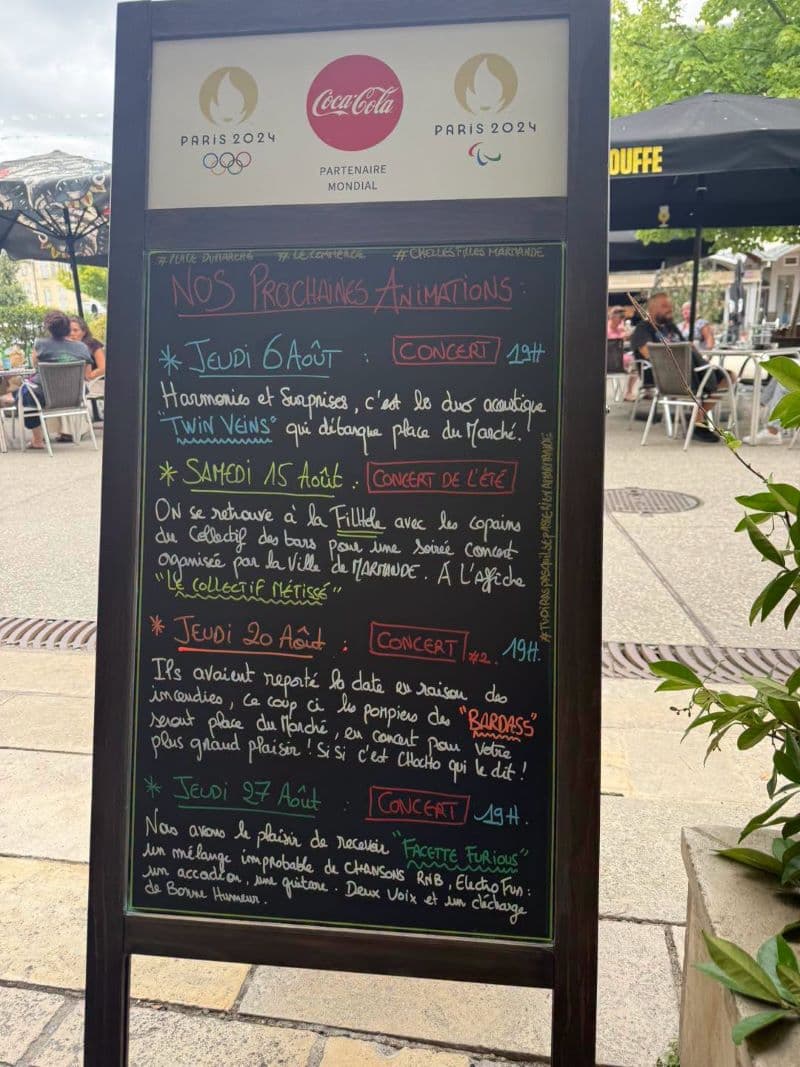 PARIS 2024
Coca-Cola
PARTENAIRE
MONDIAL
PARIS 2024
OUFFE
#PLACE DUMARCHE #LE COMMERCE #CHELLESFILLES MARMANDE
NOS PROCHAINES ANIMATIONS:
* JEUDI 6 AOÛT : CONCERT 19H
Harmonies et Surprises, c'est le duo acoustique
"TWIN VEINS" qui débarque place du Marché.
* SAMEDI 15 Août . CONCERT DE L'ÉTÉ
ON se retrouve à la FilHole avec les copains
du Collectif des bars pour une soirée concert
organisée par la Ville de MARMANDE. À L'Affiche
"LE COLLECTIF MÉTISSÉ"
* JEUDI 20 Août : CONCERT #2. 19H.
Ils avaient reporté la date en raison des
incendies, ce coup ci les pompiers des "BARDASS"
seront place du Marché, en concert pour votre
plus grand plaisir ! Si Si c'est CHOCHO qui le dit !
* JEUDI 27 Août : CONCERT 19H.
Nous avons le plaisir de recevoir "FACETTE FURIOUS"
un mélange improbable de CHANSONS RNB, Electro Fun :
un accordéon, une guitare. Deux Voix et un décharge
de Bonne Humeur.